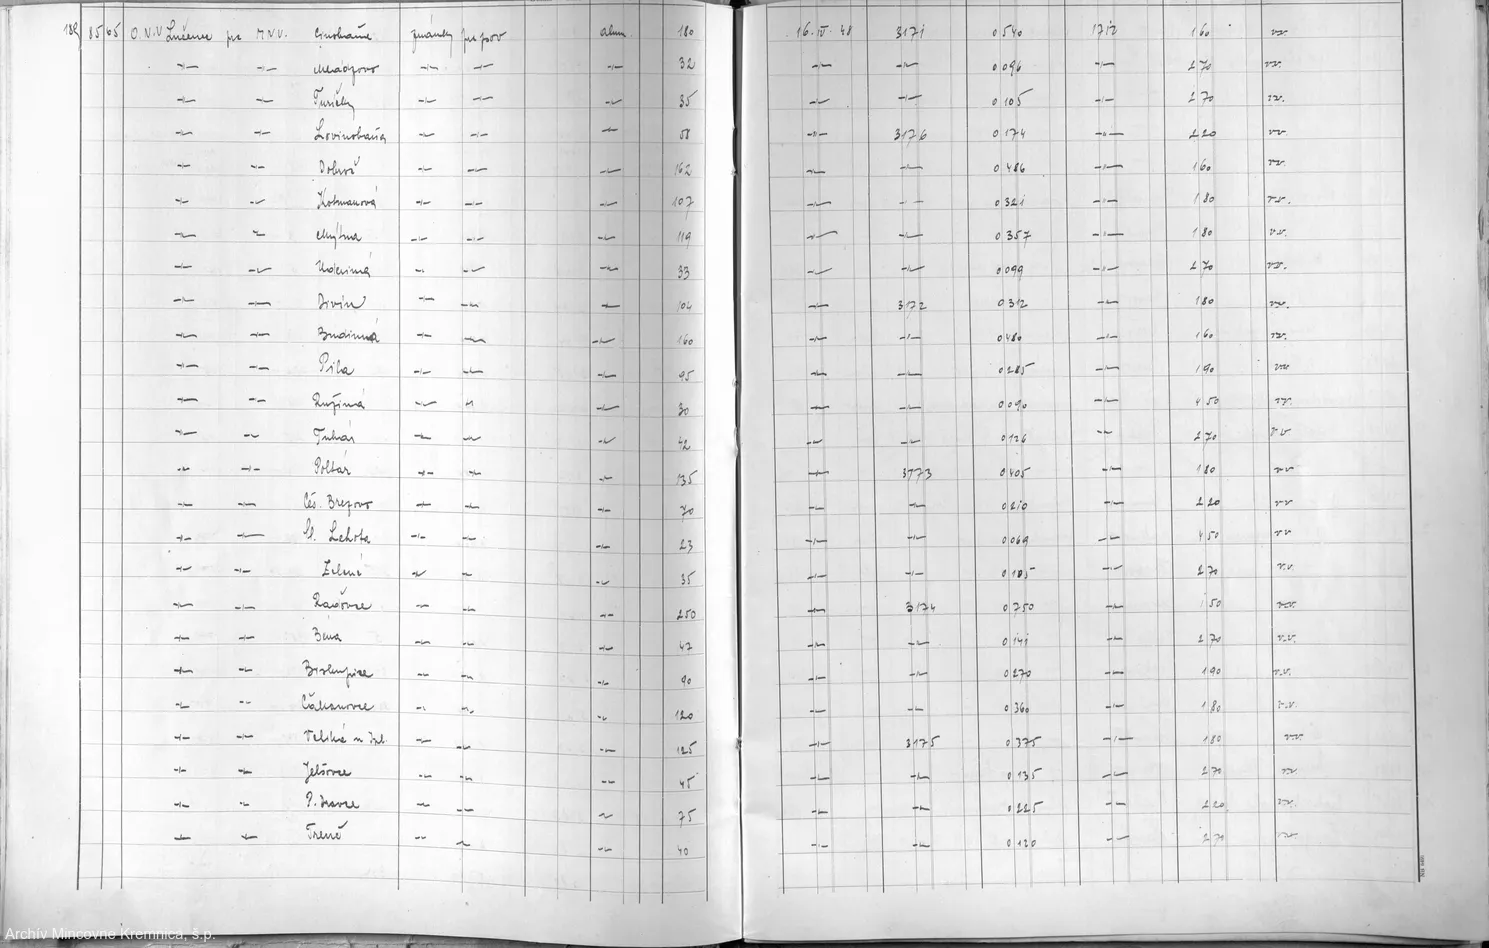 189 85 65 O.N.V Lučenec pre M.N.V. Cinobaňa známky pre psov alum. 180 16. IV. 48 3171 0 540 1712 1 60 vv.
-"- -"- Mládzovo -"- -"- -"- 32 -"- -"- 0 096 -"- 2 70 vv.
-"- -"- Turičky -"- -"- -"- 35 -"- -"- 0 105 -"- 2 70 vv.
-"- -"- Lovinobaňa -"- -"- -"- 58 -"- 3176 0 174 -"- 2 20 vv
-"- -"- Dobroč -"- -"- -"- 162 -"- -"- 0 486 -"- 1 60 vv.
-"- -"- Kotmanová -"- -"- -"- 107 -"- -"- 0 321 -"- 1 80 vv.
-"- -"- Mýtna -"- -"- -"- 119 -"- -"- 0 357 -"- 1 80 vv.
-"- -"- -"- -"- -"- 33 -"- -"- 0 099 -"- 2 70 vv.
-"- -"- Divín -"- -"- -"- 104 -"- 3172 0 312 -"- 1 80 vv.
-"- -"- Budinná -"- -"- -"- 160 -"- -"- 0 480 -"- 1 60 vv.
-"- -"- Píla -"- -"- -"- 95 -"- -"- 0 285 -"- 1 90 vv
-"- -"- Ružiná -"- -"- -"- 30 -"- -"- 0 090 -"- 4 50 vv.
-"- -"- Tuhár -"- -"- -"- 42 -"- -"- 0 126 -"- 2 70 vv
-"- -"- Poltár -"- -"- -"- 135 -"- 3173 0 405 -"- 1 80 vv
-"- -"- Čes. Brezovo -"- -"- -"- 70 -"- -"- 0 210 -"- 2 20 vv
-"- -"- Lehota -"- -"- -"- 23 -"- -"- 0 069 -"- 4 50 vv
-"- -"- Zelené -"- -"- -"- 35 -"- -"- 0 105 -"- 2 70 v.v.
-"- -"- -"- -"- -"- 250 -"- 3174 0 750 -"- 1 50 vv.
-"- -"- Biňa -"- -"- -"- 47 -"- -"- 0 141 -"- 2 70 v.v.
-"- -"- Biskupice -"- -"- -"- 90 -"- -"- 0 270 -"- 1 90 v.v.
-"- -"- Čakanovce -"- -"- -"- 120 -"- -"- 0 360 -"- 1 80 v.v.
-"- -"- Veľká n Ipl. -"- -"- -"- 125 -"- 3175 0 375 -"- 1 80 v.v.
-"- -"- Jelšovce -"- -"- -"- 45 -"- -"- 0 135 -"- 2 70 vv
-"- -"- -"- -"- -"- 75 -"- -"- 0 225 -"- 2 20 vv.
-"- -"- Trenč -"- -"- -"- 40 -"- -"- 0 120 -"- 2 70 vv.
Archív Mincovne Kremnica, š.p.